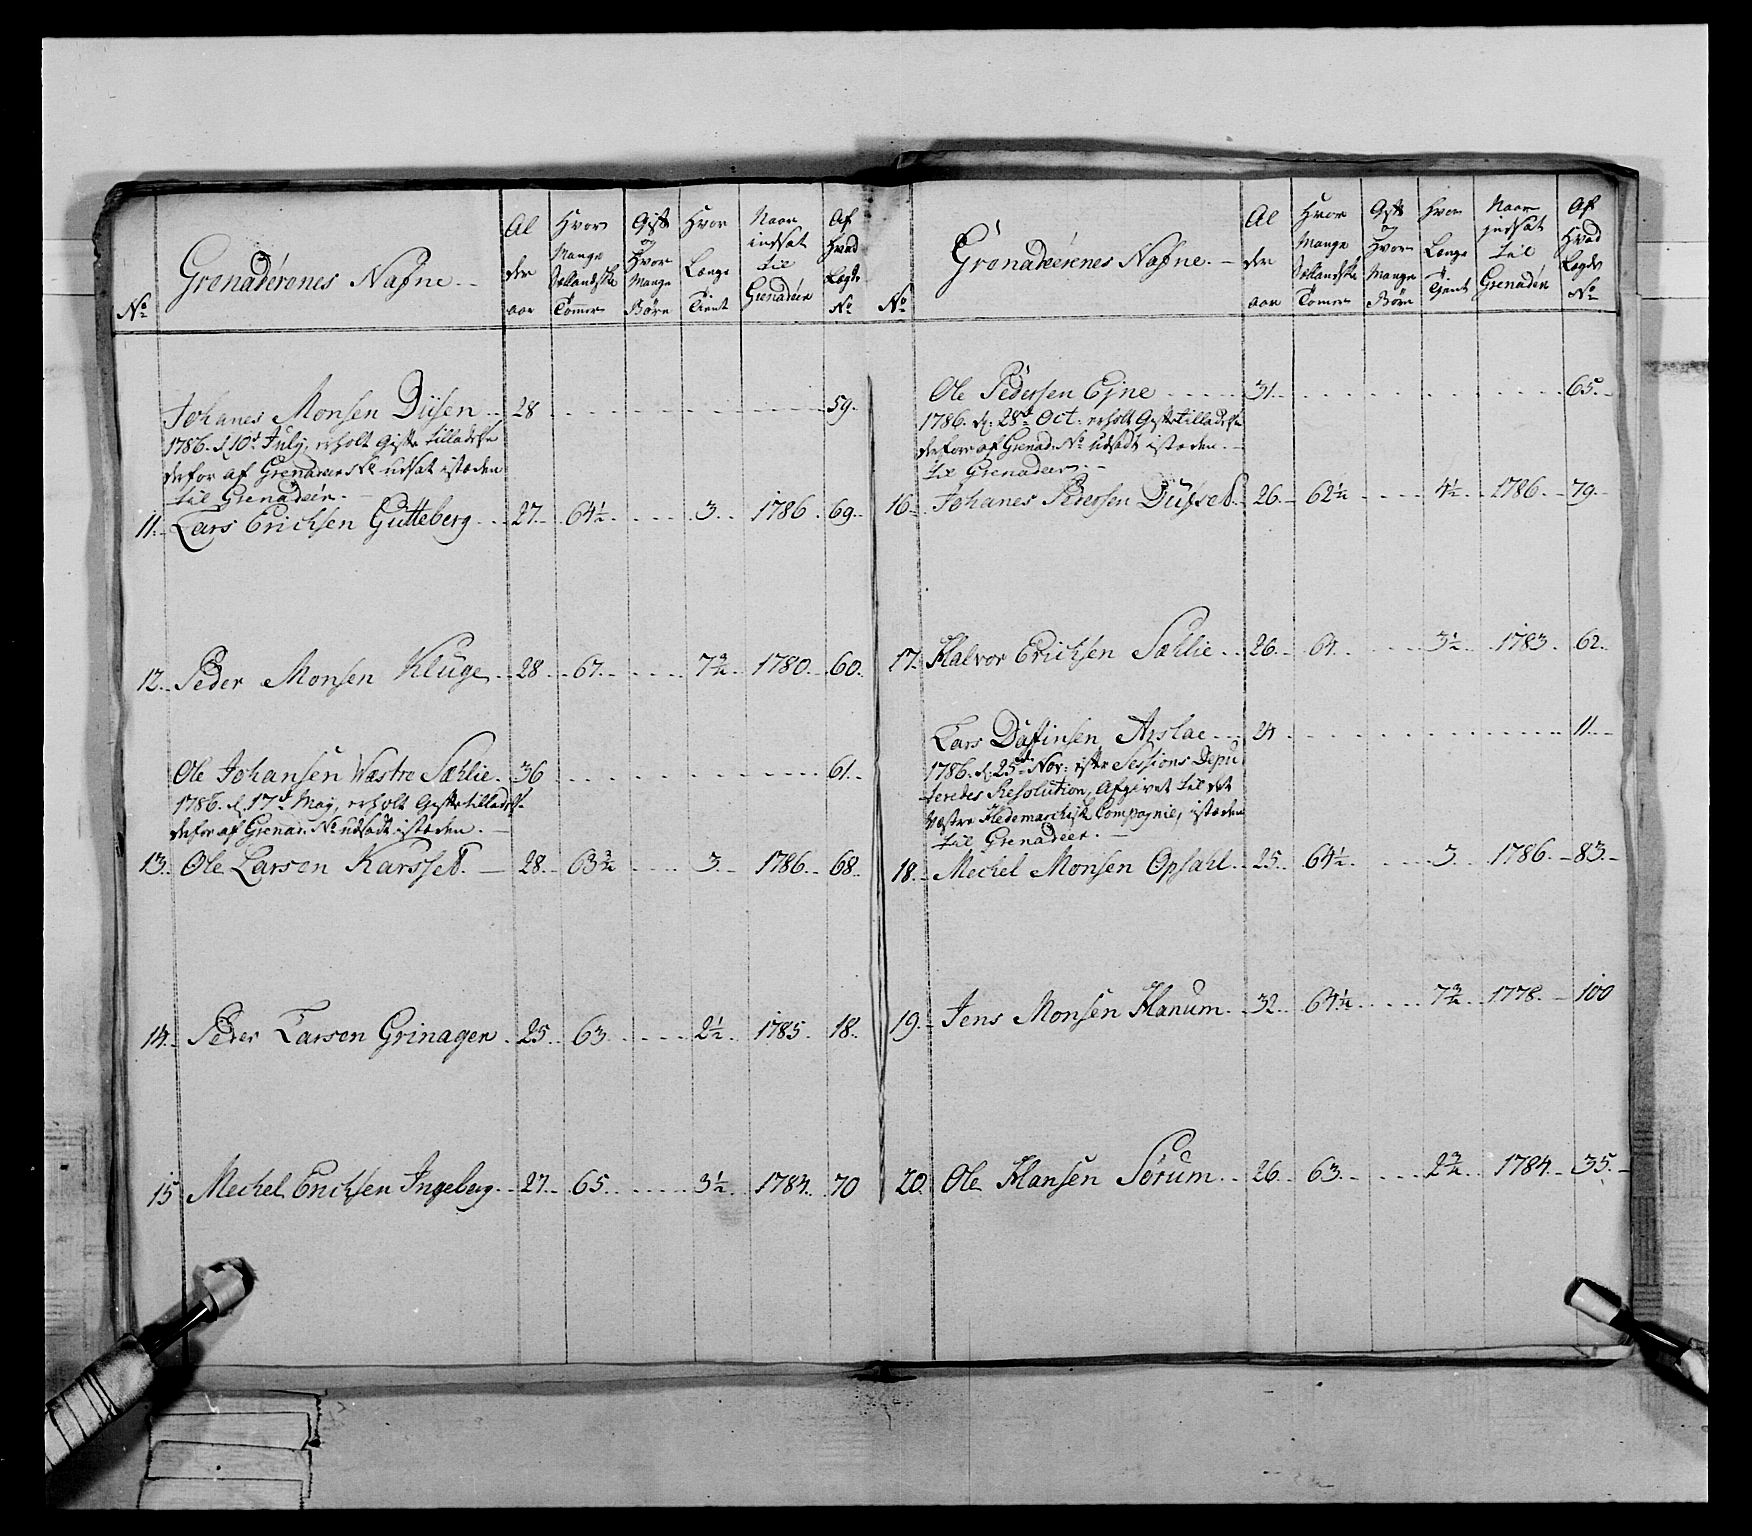 No
Grenadérenes Nafne
Al der aar
Hvor Mange Siellandske Tommer
Gift og Hvor Mange Børn
Hvor Længe Tient
Naar indsat til Grenadéer
Af Hvad Lægds No
Johanes Monsen Dysen 28 59.
1786. d. 10de July, erholt Gifte tilladelse
derfor af Grenadeer No udsat istæden
til Grenadeér.
11. Lars Erichsen Gutteberg 27. 64½ 3. 1786. 69.
12. Peder Monsen Kluge 28. 67. 7¾ 1780. 60.
Ole Johansen Wæstre Sæhlie. 36 61.
1786. d. 17de May, erholt Giftetilladelse
derfor af Grenad. No udsadt istæden.
13. Ole Larsen Karsset. 28. 63¾ 3. 1786. 68.
14. Peder Larsen Grinagen 25. 63. 2½ 1785. 18.
15 Mechel Erichsen Ingeberg 27. 65. 3½ 1784. 70
No
Grenadeérenes Nafne.
Al der aar
Hvor Mange Siællandske Tomer
Gift og Hvor Mange Børn
Hvor Længe Tjent
Naar indsat til Grenadér
Af Hvad Lægds No
Ole Pedersen Ejne 31. 65.
1786. d: 28de Oct: erholt Giftetilladelse
derfore af Grenad: No udsadt istæden.
til Grenadeer.
16. Johanes Pedersen Dufset. 26. 62½ 4½ 1786. 79.
17. Halvor Erichsen Sæhlie 26. 64. 3½ 1783. 62.
Lars Daffinsen Aislae 24 11.
1786. d: 25de Nov: efter Sessions Depu
teredes Resolution, Afgivet til det
Wæstre Hedemarchisk Compagnie, istæden
til Grenadeer.
18. Mechel Monsen Opsahl. 25. 64½ 3. 1786. 83.
19. Jens Monsen Hanum. 32. 64½ 7¾ 1778. 100
20. Ole Hansen Sørum. 26. 63. 2¾ 1784. 35.